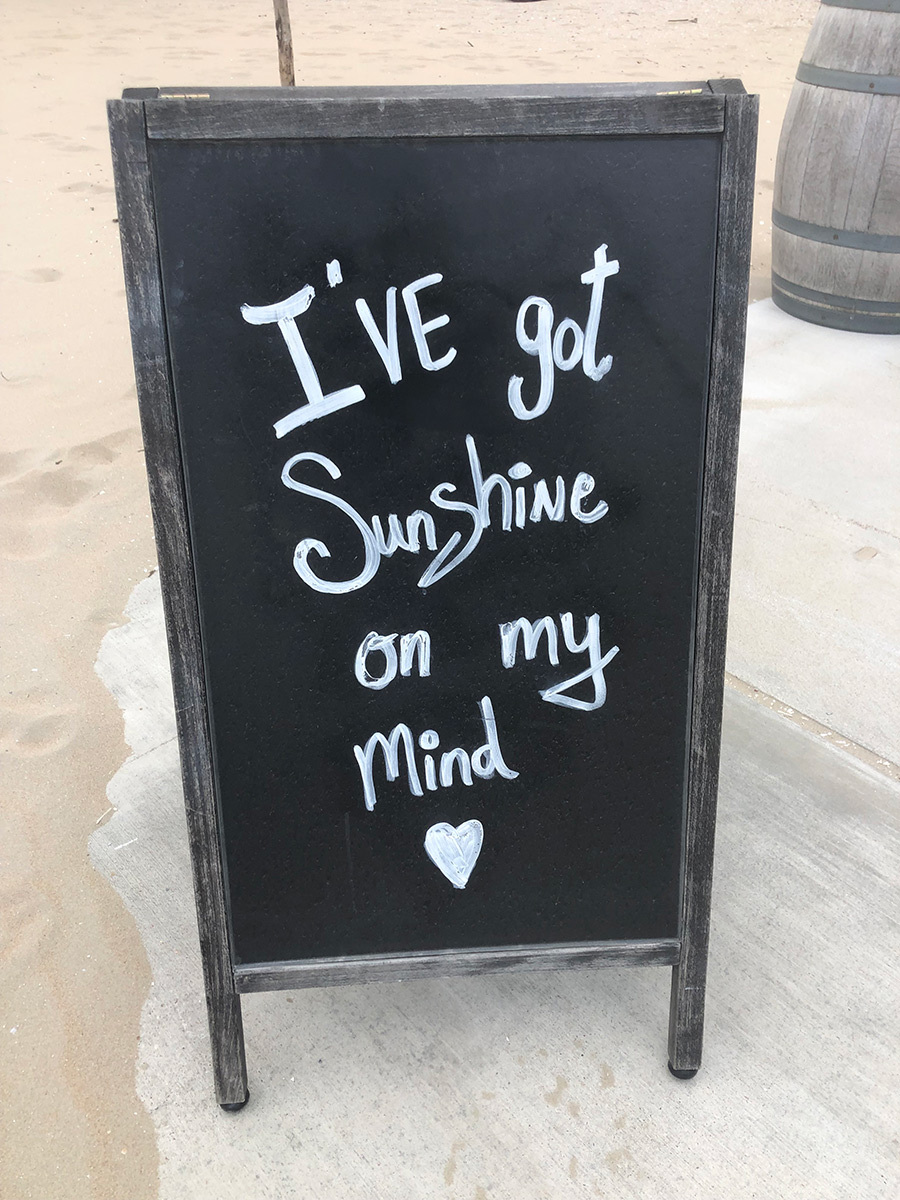 I'VE got
Sunshine
on my
Mind